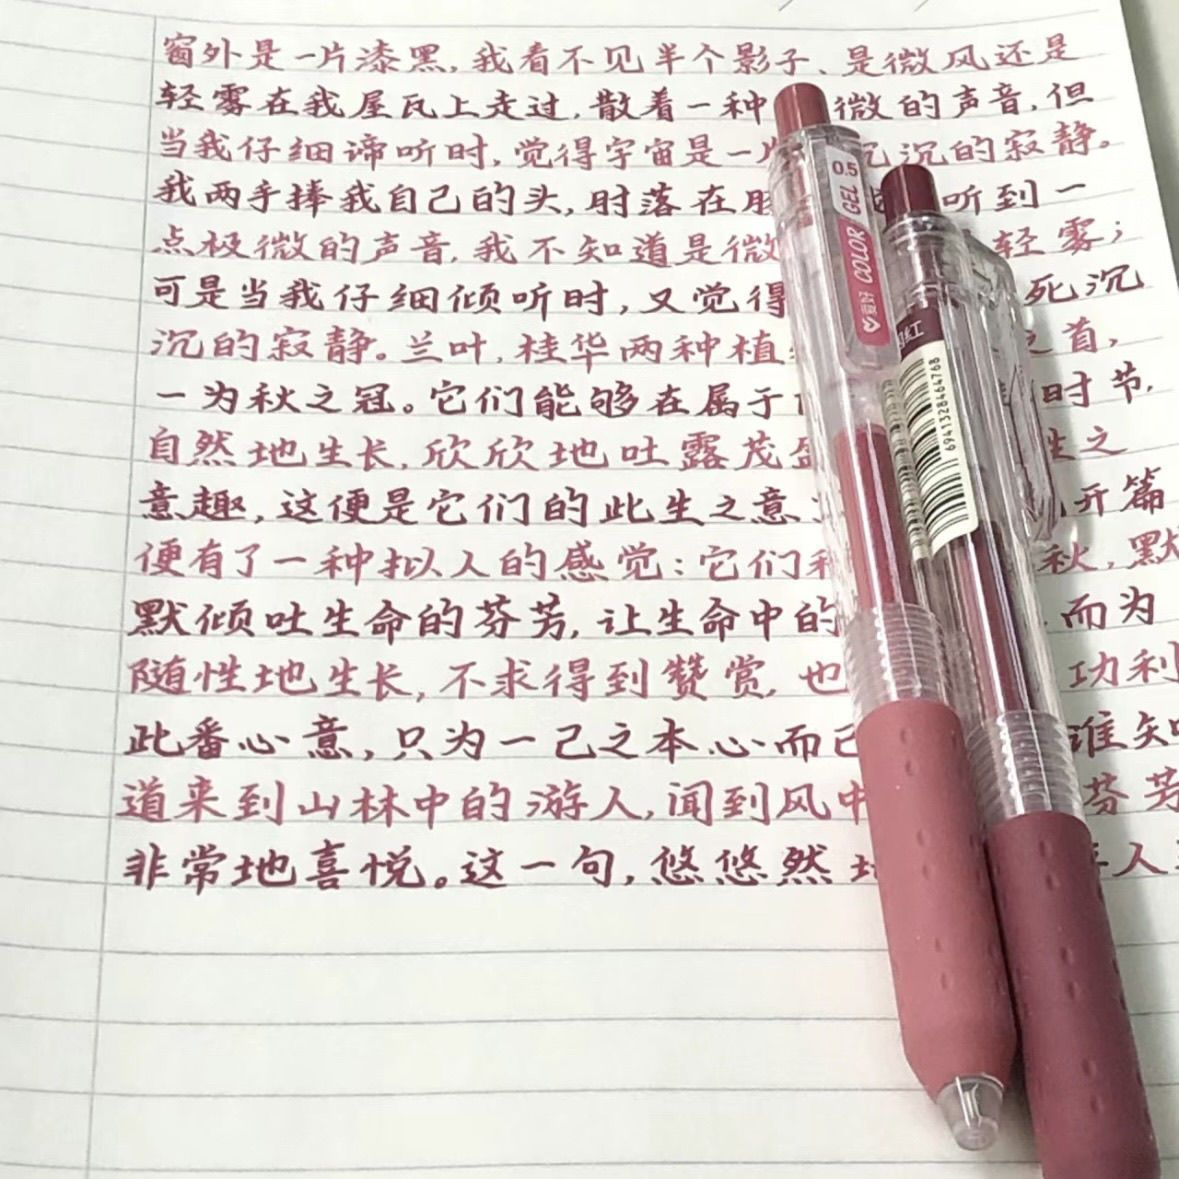 窗外是一片漆黑,我看不见半个影子、是微风还是
轻雾在我屋瓦上走过,散着一种 微的声音,但
当我仔细谛听时,觉得宇宙是一 沉沉的寂静。
我两手捧我自己的头,肘落在 听到一
点极微的声音,我不知道是微 轻雾;
可是当我仔细倾听时,又觉得 死沉
沉的寂静。兰叶,桂华两种植 之首,
一为秋之冠。它们能够在属于 时节,
自然地生长,欣欣地吐露茂 生之
意趣,这便是它们的此生之意 开篇
便有了一种拟人的感觉:它们 秋,默
默倾吐生命的芬芳,让生命中的 而为
随性地生长,不求得到赞赏,也 功利
此番心意,只为一己之本心而已 谁知
道来到山林中的游人,闻到风中 芬芳
非常地喜悦。这一句,悠悠然 人
0.5
GEL
COLOR
红
6941328464768